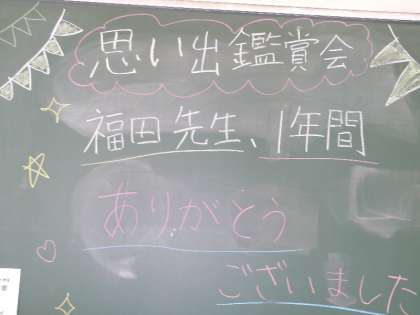 思い出鑑賞会
福田先生、1年間
ありがとう
ございました